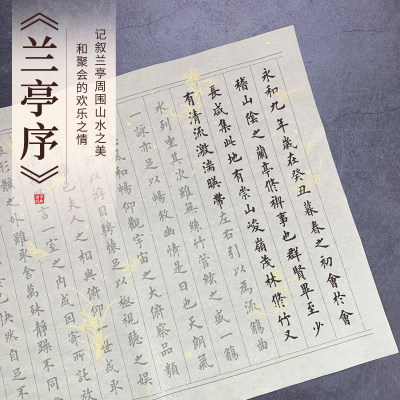 《兰亭序》
记叙兰亭周围山水之美
和聚会的欢乐之情
永和九年歲在癸丑暮春之初會於會
稽山陰之蘭亭脩禊事也群賢畢至少
長咸集此地有崇山峻嶺茂林脩竹又
有清流激湍暎帶左右引以為流觴曲
水列坐其次雖無絲竹管絃之盛一觴
詠亦足以暢敘幽情是日也天朗氣
風和暢仰觀宇宙之大俯察品類
目騁懷足以極視聽之娛
也夫人之相與俯仰一世或取
言一室之內或因寄所託放
形骸之外雖取舍萬殊靜躁不同
快然自足不